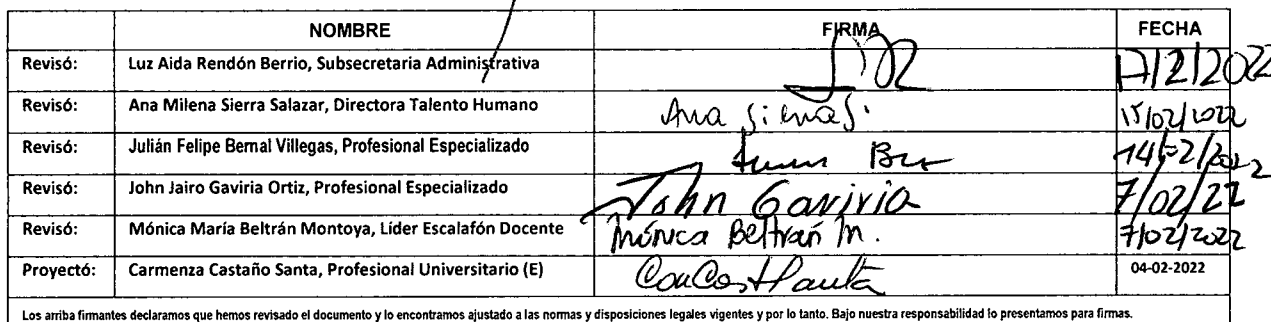 NOMBRE FIRMA FECHA
Revisó: Luz Aida Rendón Berrio, Subsecretaria Administrativa 17/2/2022
Revisó: Ana Milena Sierra Salazar, Directora Talento Humano Ana Sierra S. 15/02/2022
Revisó: Julián Felipe Bernal Villegas, Profesional Especializado 14/02/2022
Revisó: John Jairo Gaviria Ortiz, Profesional Especializado John Gaviria 7/02/22
Revisó: Mónica María Beltrán Montoya, Líder Escalafón Docente Mónica Beltrán M. 7/02/2022
Proyectó: Carmenza Castaño Santa, Profesional Universitario (E) 04-02-2022
Los arriba firmantes declaramos que hemos revisado el documento y lo encontramos ajustado a las normas y disposiciones legales vigentes y por lo tanto. Bajo nuestra responsabilidad lo presentamos para firmas.